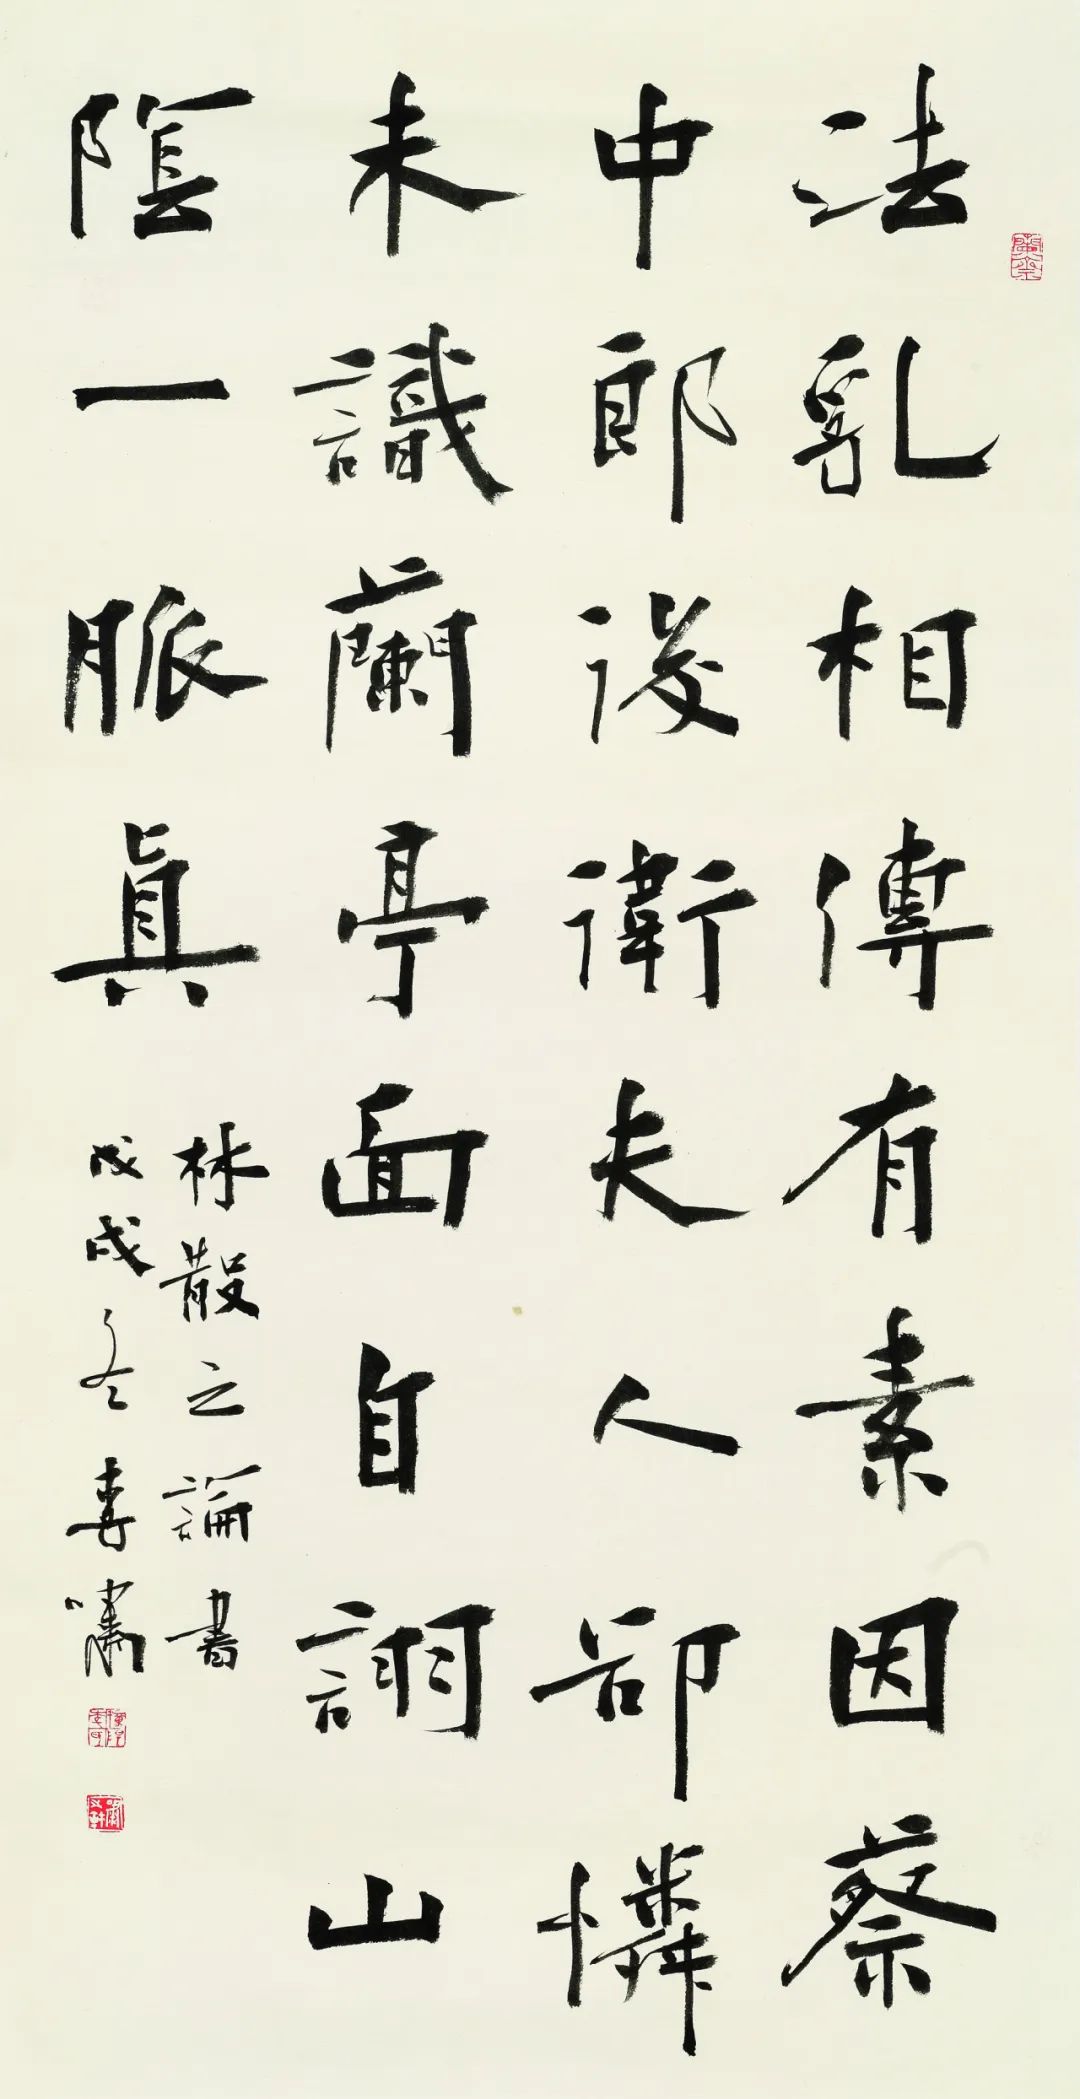 法乳相傳有素因蔡
中郎後衛夫人卻憐
未識蘭亭面自詡山
陰一脈眞
林散之論書
戊戌冬李嘯